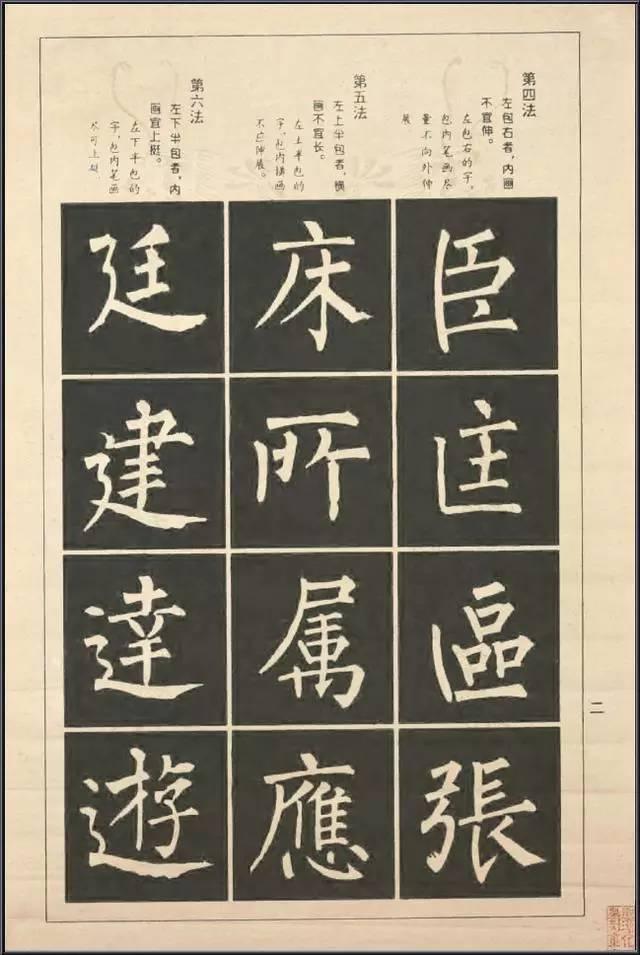 第四法
左包右者，内画
不宜伸。
左包右的字，
包内笔画尽
量不向外伸
展
臣
匡
區
張
第五法
左上半包者，横
画不宜长。
左上半包的
字，包内横画
不应伸展。
床
所
属
應
第六法
左下半包者，内
画宜上挺。
左下半包的
字，包内笔画
尽可上挺
廷
建
達
遊
二